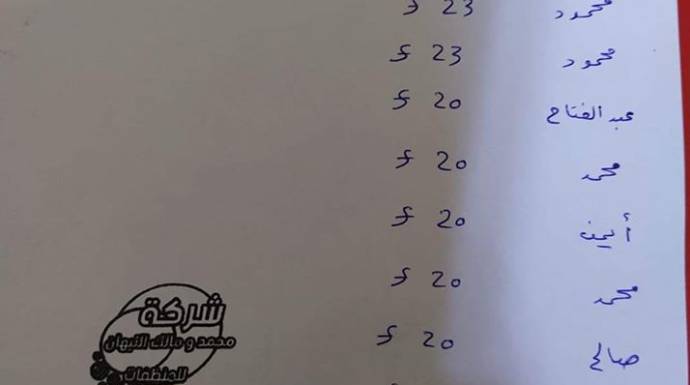 محمود 23 £
محمود 23 £
عبد الفتاح 20 £
محمد 20 £
أيمن 20 £
محمد 20 £
صالح 20 £
شركة
محمد و مالك النبهان
للمنظفات